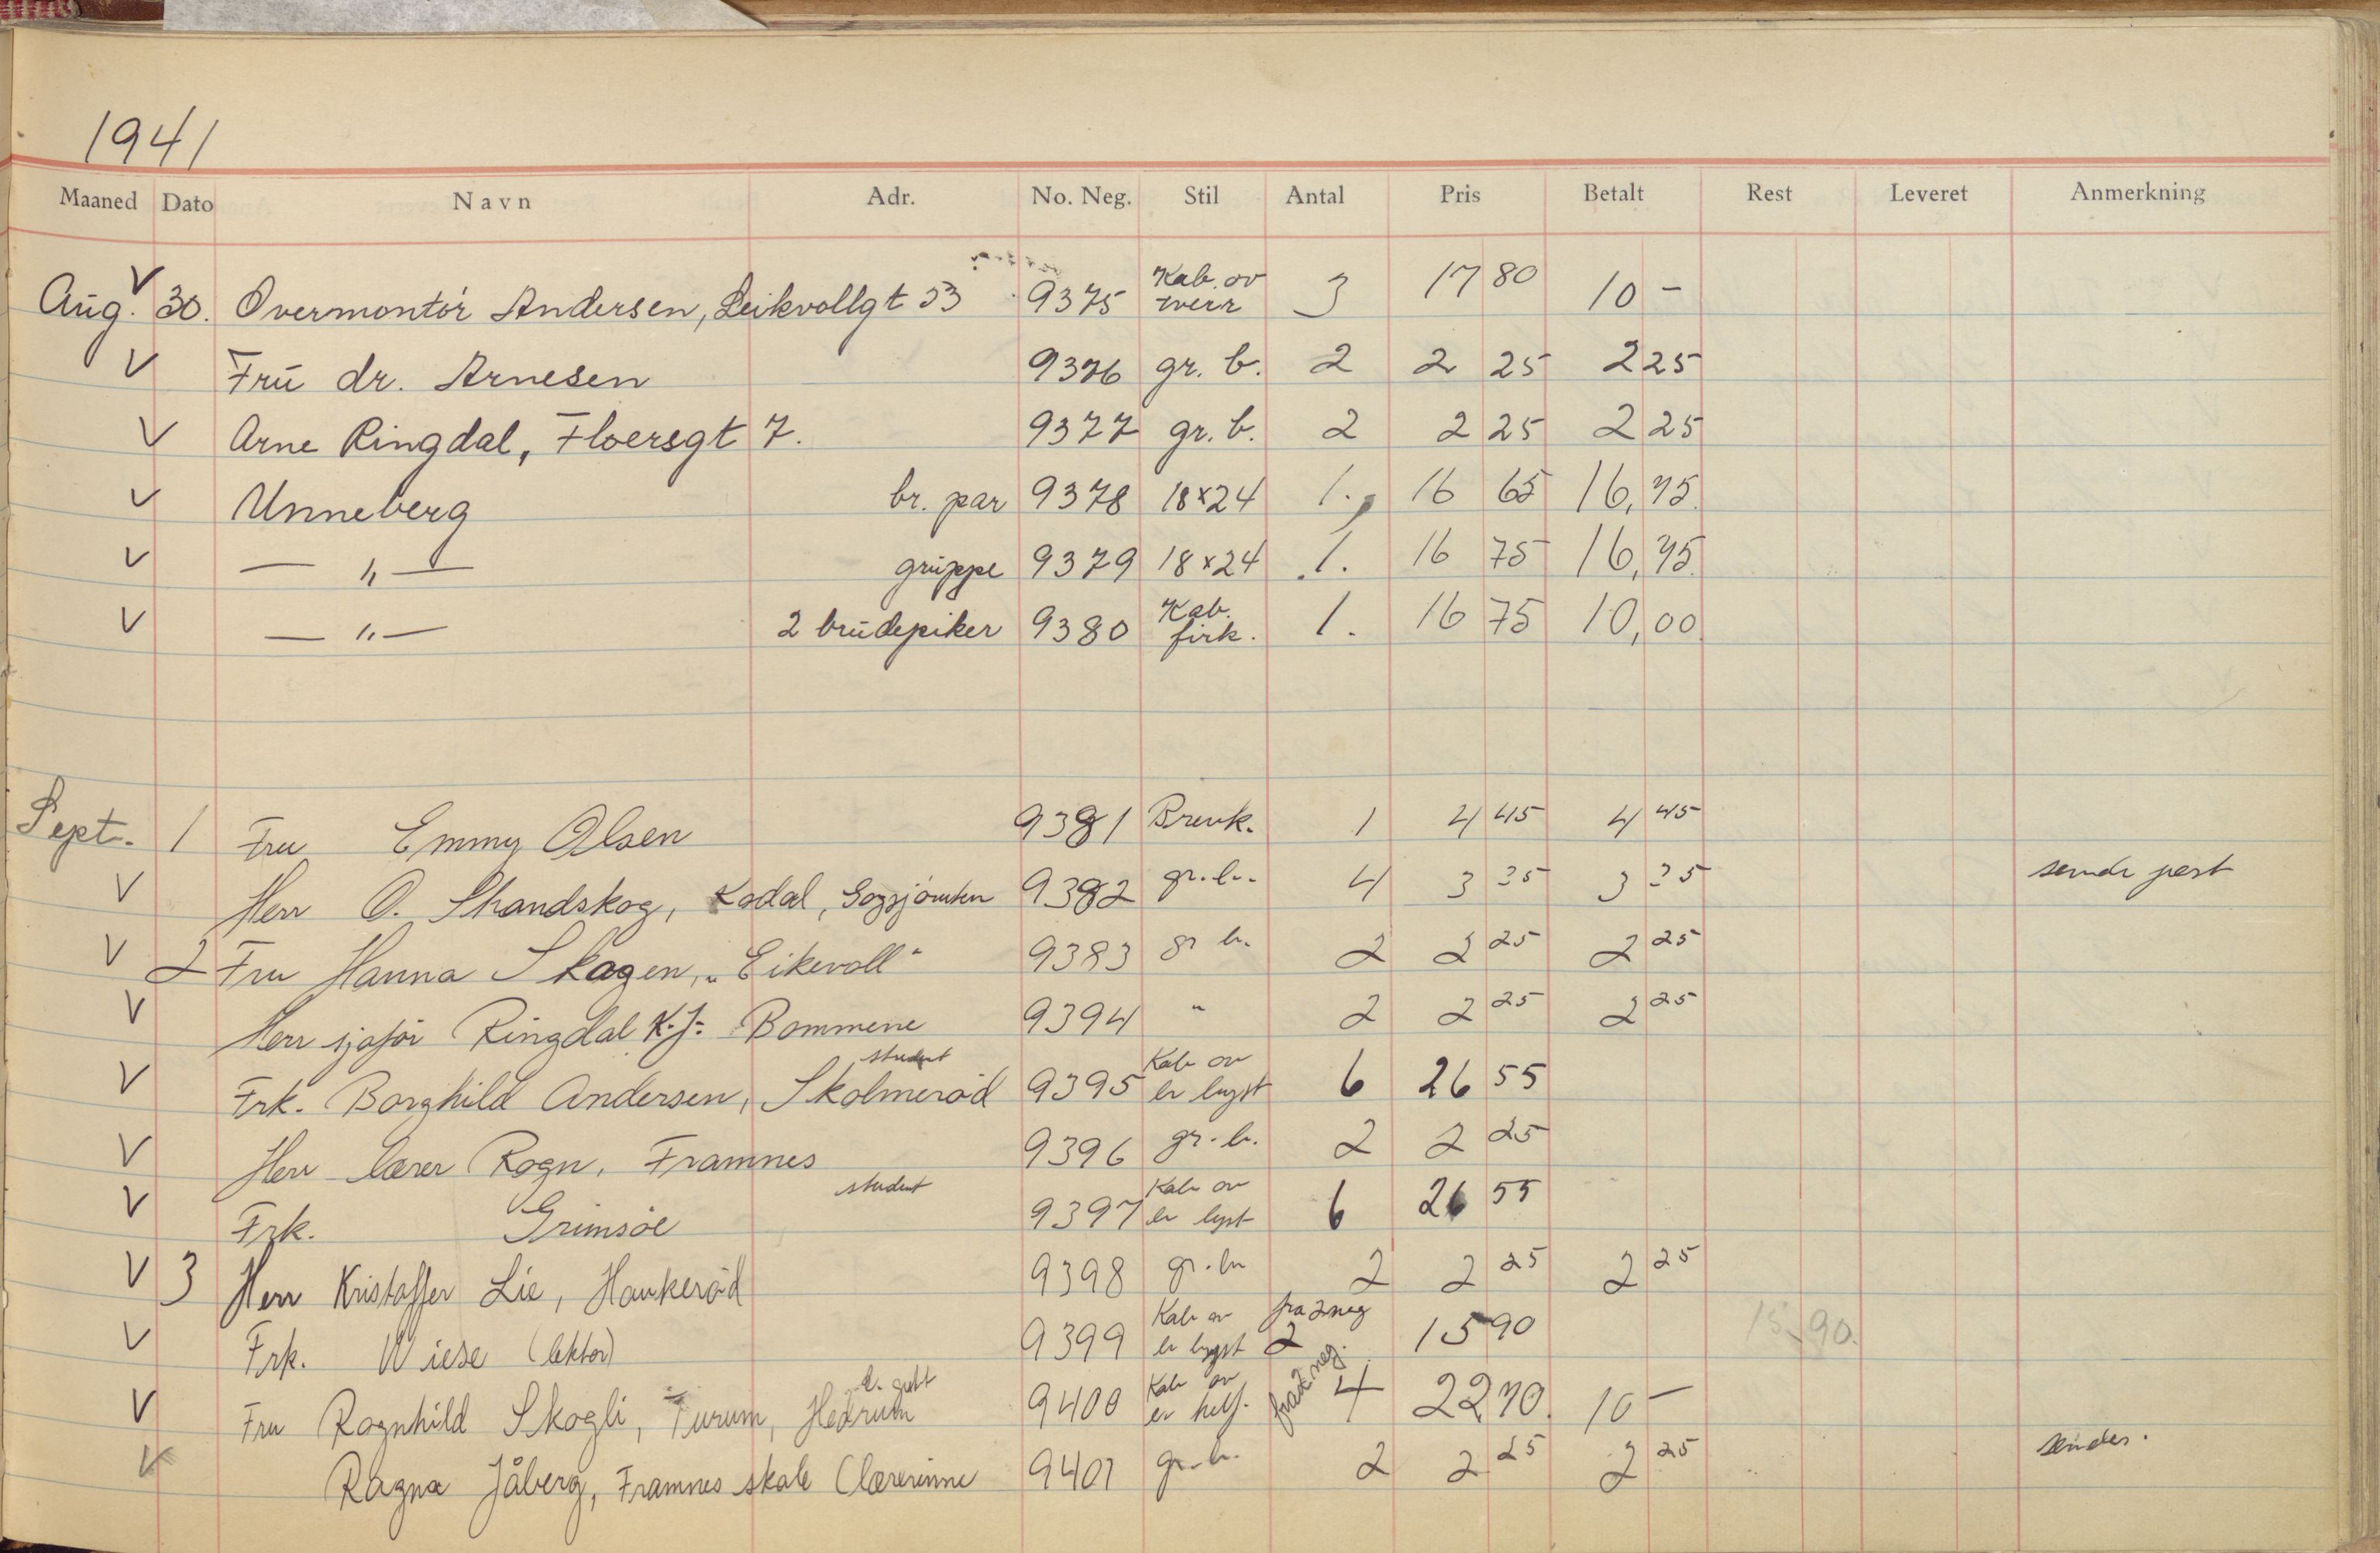 1941
Maaned Dato Navn Adr. No. Neg. Stil Antal Pris Betalt Rest Leveret Anmerkning
Aug. V 30. Overmontör Andersen, Leikvollgt 53 9375 Kab. ov 3 17 80 10 -
V Frū dr. Arnesen 9376 gr. b. 2 2 25 2 25
V Arne Ringdal, Floersgt 7. 9377 gr. b. 2 2 25 2 25
V Unneberg br. par 9378 18x24 1. 16 65 16,75.
V — " — grūppe 9379 18x24 1. 16 75 16,75.
V — " — 2 brūdepiker 9380 Kab. firk. 1. 16 75 10,00
Sept. 1 Fru Emmy Olsen 9381 Brevk. 1 4 45 4 45
V Herr O. Skandskog, Kodal, 9382 gr. b. 4 3 35 3 35 sende post
V 2 Fru Hanna Skagen, „Eikevoll“ 9383 gr b. 2 2 25 2 25
V Herr sjåför Ringdal K.J. Bommene 9394 " 2 2 25 2 25
V Frk. Borghild Andersen, Skolmeröd student 9395 Kab ov er lyst 6 26 55
V Herr lærer Rogn, Framnes 9396 gr. b. 2 2 25
V Frk. Grimsöe student 9397 Kab ov er lyst 6 26 55
V 3 Herr Kristoffer Lie, Haukeröd 9398 gr. b. 2 2 25 2 25
V Frk. Wiese (lektor) 9399 Kab ov er lyst fra 2 neg 2 15 90 15,90.
V Fru Ragnhild Skogli, Furum, Hedrum 9400 Kab ov er helf. fra 2 neg. 4 22,70. 10 —
V Ragna Jåberg, Framnes skole (lærerinne 9401 gr. b. 2 2 25 2 25 sendes.